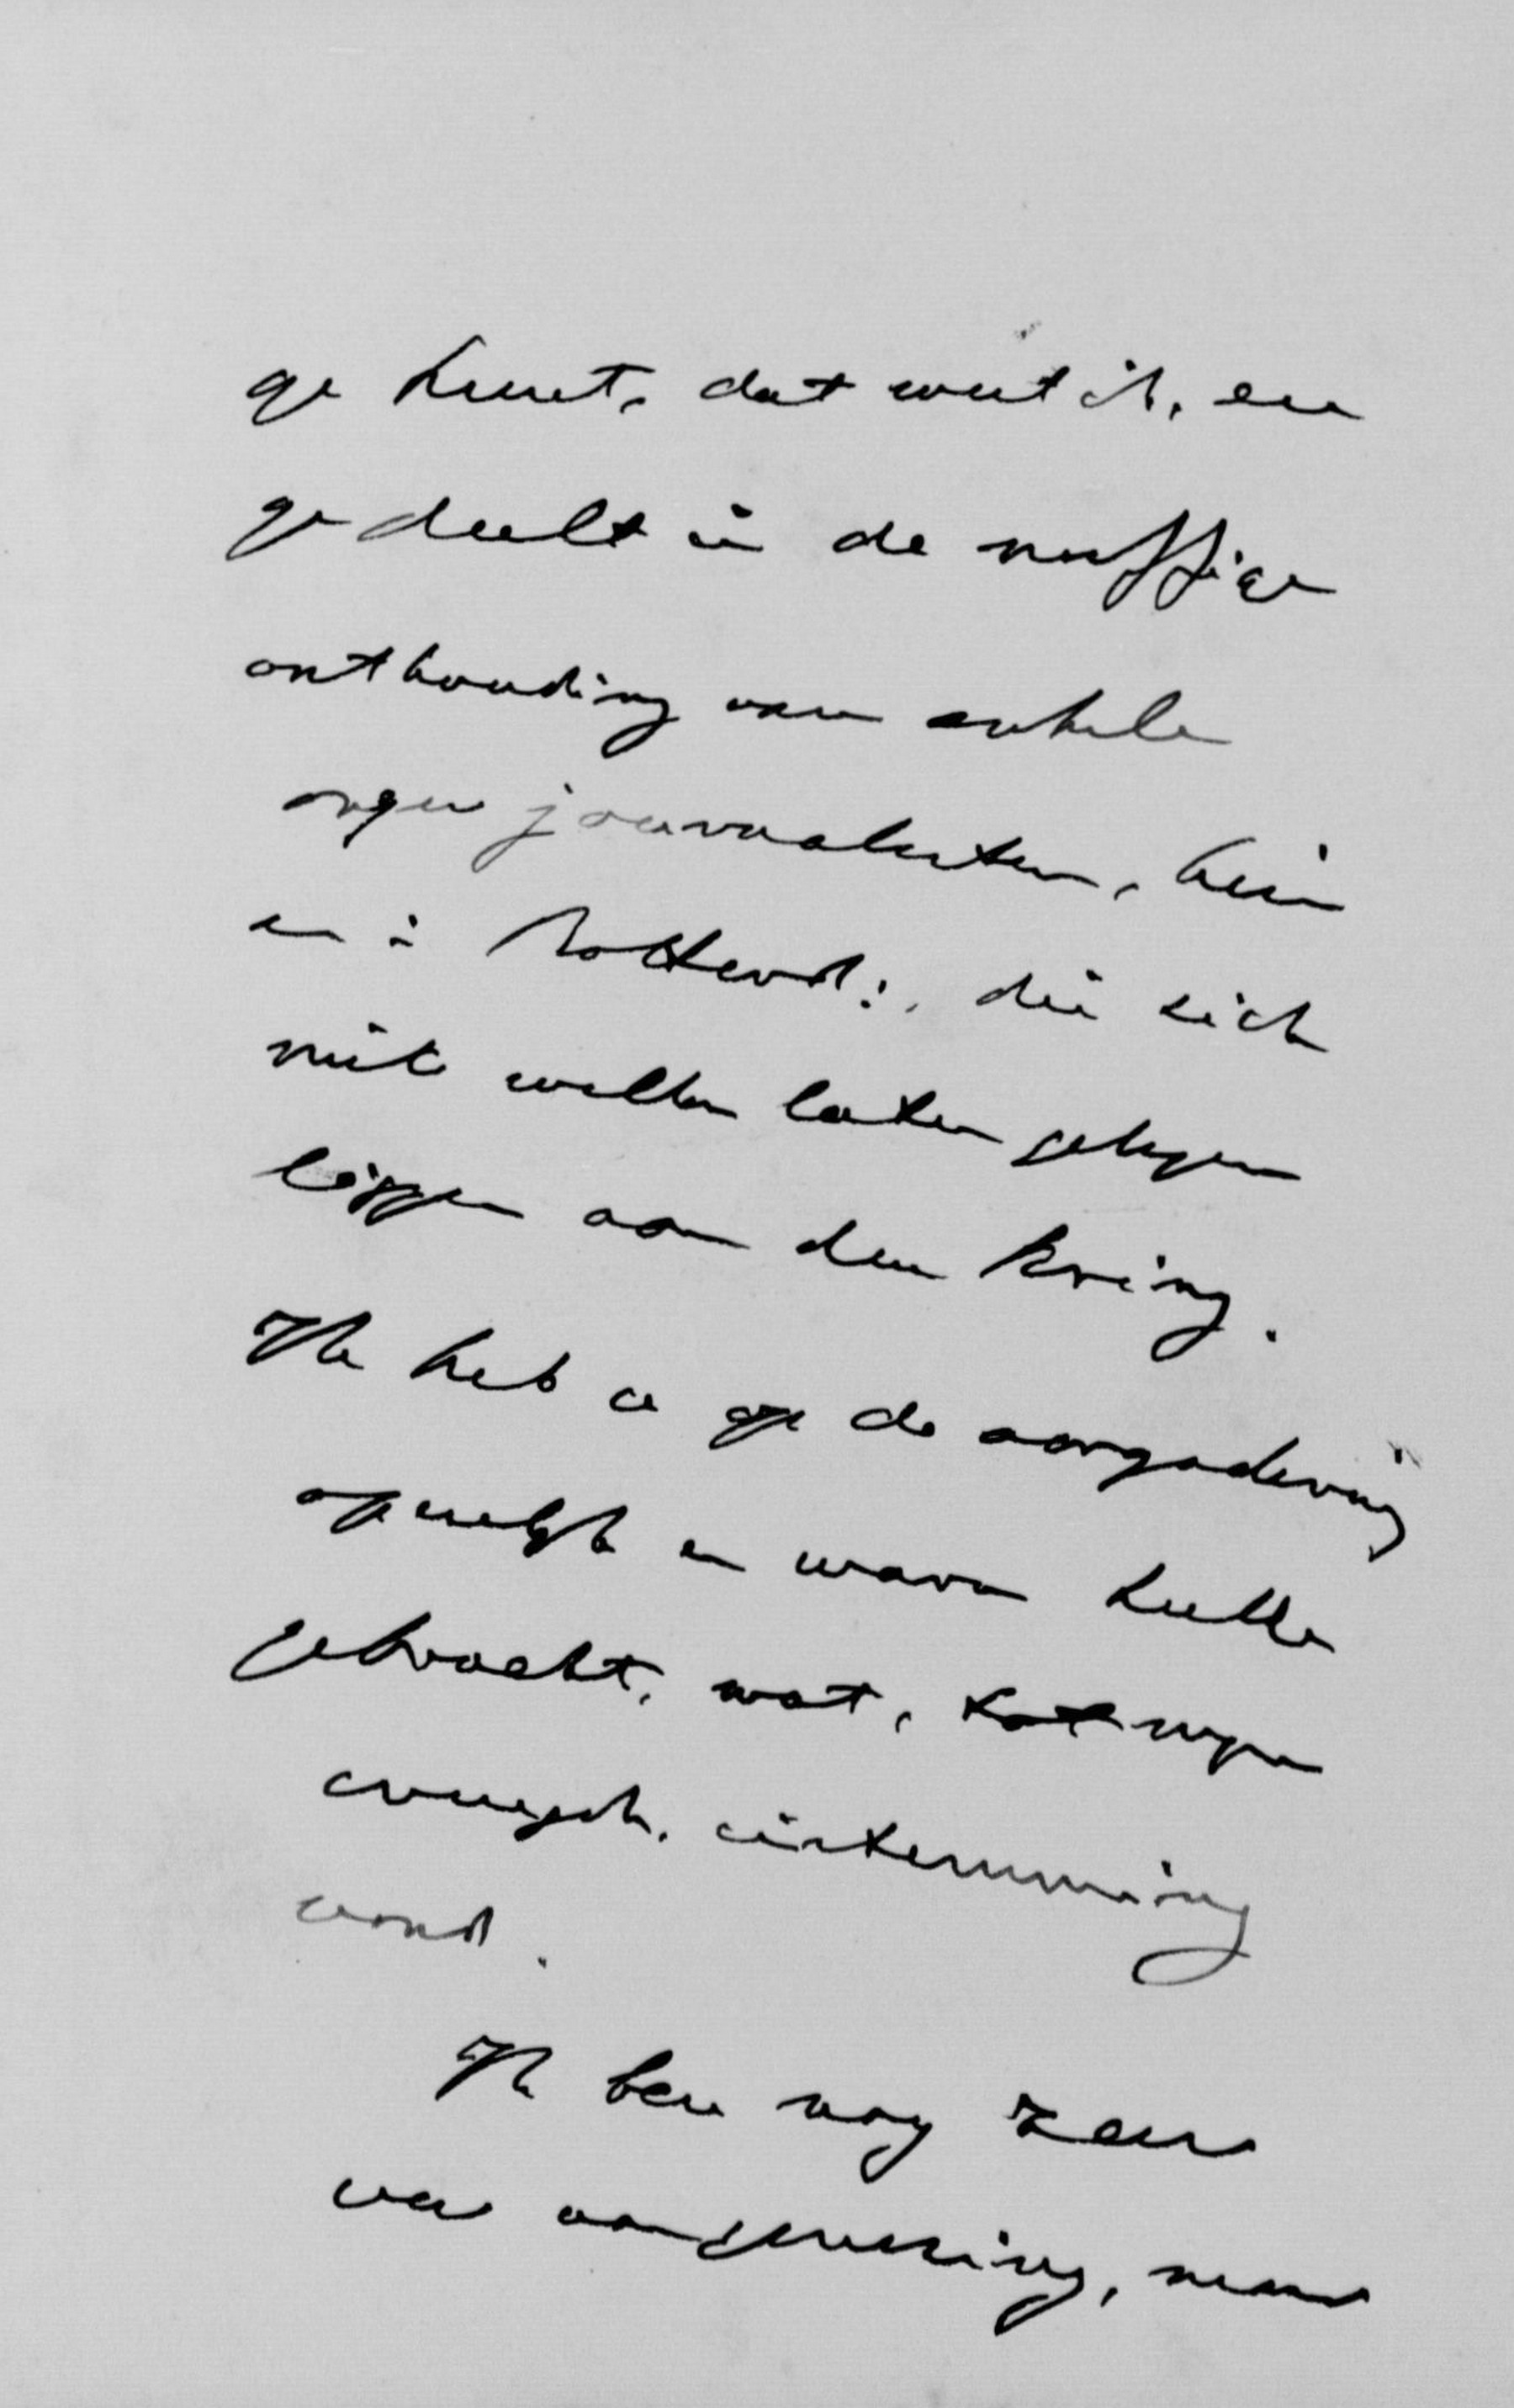 ge kunt, dat weet ik, en
ge deelt in de nuffige
onthouding van enkele
onzer journalisten, hier
en i Rotterd:, die zich
niet willen laten gelegen
liggen aan den Kring.
Ik heb u op de vergadering
en waren hulde
gebracht, wat,
instemming
vond.
Ik ben nog zeer
van, maar